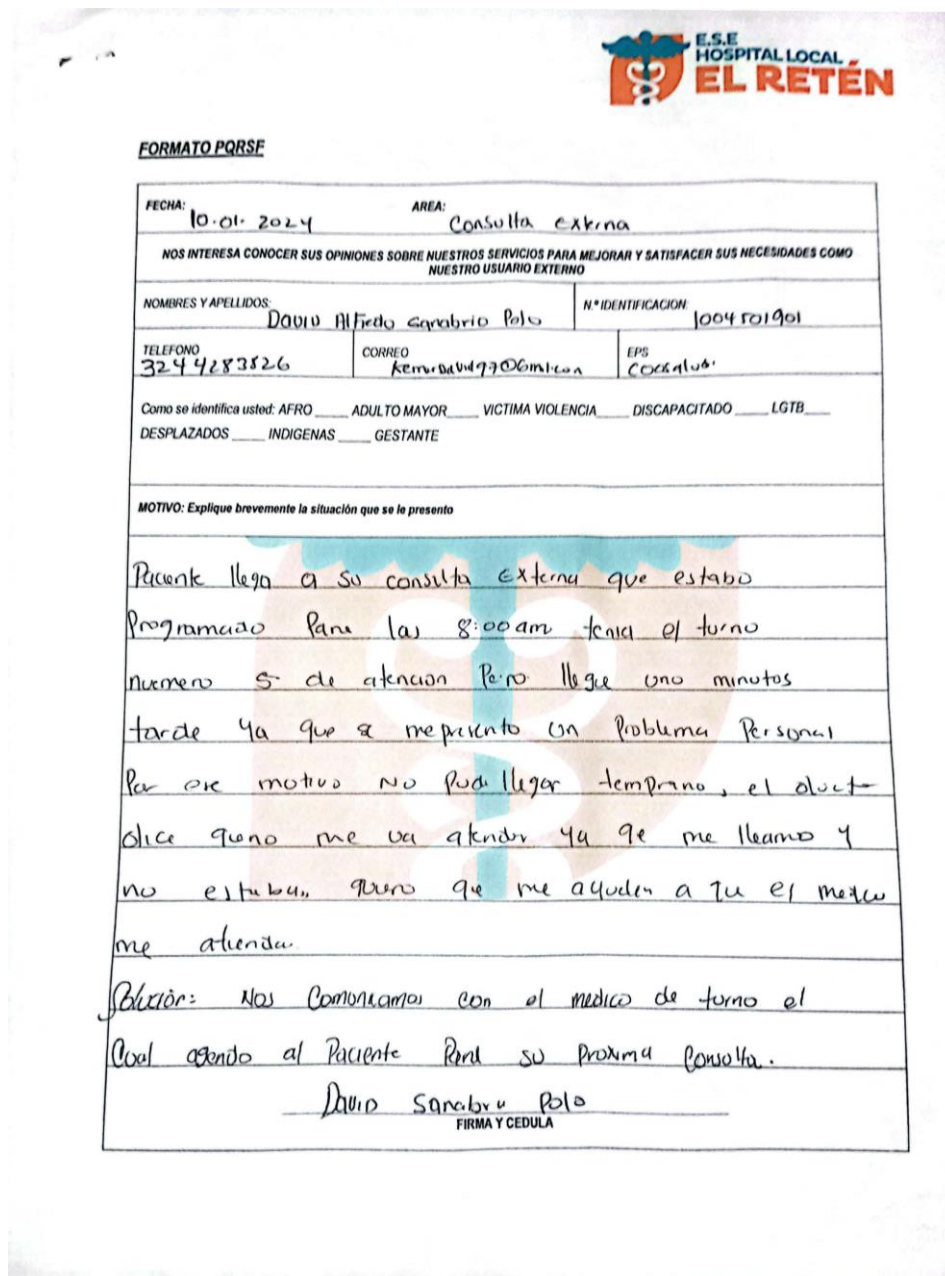 E.S.E
HOSPITAL LOCAL
EL RETÉN
FORMATO PQRSF
FECHA: 10.01.2024 AREA: Consulta externa
NOS INTERESA CONOCER SUS OPINIONES SOBRE NUESTROS SERVICIOS PARA MEJORAR Y SATISFACER SUS NECESIDADES COMO
NUESTRO USUARIO EXTERNO
NOMBRES Y APELLIDOS: David Alfredo Sanabrio Polo N.° IDENTIFICACION: 1004501901
TELEFONO CORREO EPS
3244283526
Como se identifica usted: AFRO _____ ADULTO MAYOR_____ VICTIMA VIOLENCIA_____ DISCAPACITADO _____ LGTB____
DESPLAZADOS _____ INDIGENAS _____ GESTANTE
MOTIVO: Explique brevemente la situación que se le presento
Paciente llega a su consulta Externa que estabo
Programado Para las 8:00 am tenia el turno
numero 5 de atencion Pero llegue uno minutos
tarde ya que se me presento un Problema Personal
Por ese motivo No pude llegar temprano, el doct
dice que no me va atender ya qe me llamo y
no estaba. quiero qe me ayuden a qu el medico
me atienda.
Solución: Nos Comunicamos con el medico de turno el
Cual agendo al Paciente Para su proxima Consulta.
David Sanabria Polo
FIRMA Y CEDULA